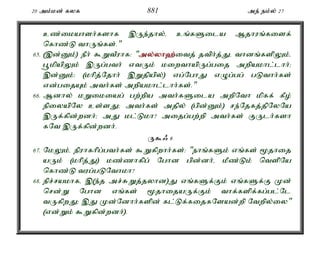 20 அம்மன் கலக 881 அந் நம்ல் 27
உண்மையாளர்களாக இருந்தால், உங்களுடைய ஆதாரங்களைக்
கொண்டு வாருங்கள்."
65. (இன்னும்) நீர் கூறுவீராக: "அல்லாஹ்வைத் தவிர்த்து, வானங்களிலும்,
பூமியிலும் இருப்பவர் எவரும் மறைவாயிருப்பதை அறியமாட்டார்;
இன்னும்: (மரித்தோர் இறுதியில்) எப்போது எழுப்பப் படுவார்கள்
என்பதையும் அவர்கள் அறியமாட்டார்கள்."
66. ஆனால் மறுமையைப் பற்றிய அவர்களுடைய அறிவோ மிகக் கீழ்
நிலையிலே உள்ளது; அவர்கள் அதில் (பின்னும்) சந்தேகத்திலேயே
இருக்கின்றனர்: அது மட்டுமா? அதைப்பற்றி அவர்கள் குருடர்களா
கவே இருக்கின்றனர்.
ருகூஃ 6
67. மேலும், நிராகரிப்பவர்கள் கூறுகிறார்கள்: "நாங்களும் எங்கள் மூதாதை
யரும் (மரித்து) மண்ணாகிப் போன பின்னர், மீண்டும் வெளியே
கொண்டு வரப்படுவோமா?
68. நிச்சயமாக, இ(ந்த அச்சுறுத்தலான)து எங்களுக்கும் எங்களுக்கு முன்
சென்று போன எங்கள் மூதாதையருக்கும் வாக்களிக்கப்பட்டே
வருகிறது; இது முன்னோர்களின் கட்டுக்கதைகளேயன்றி வேறில்லை"
(என்றும் கூறுகின்றனர்).